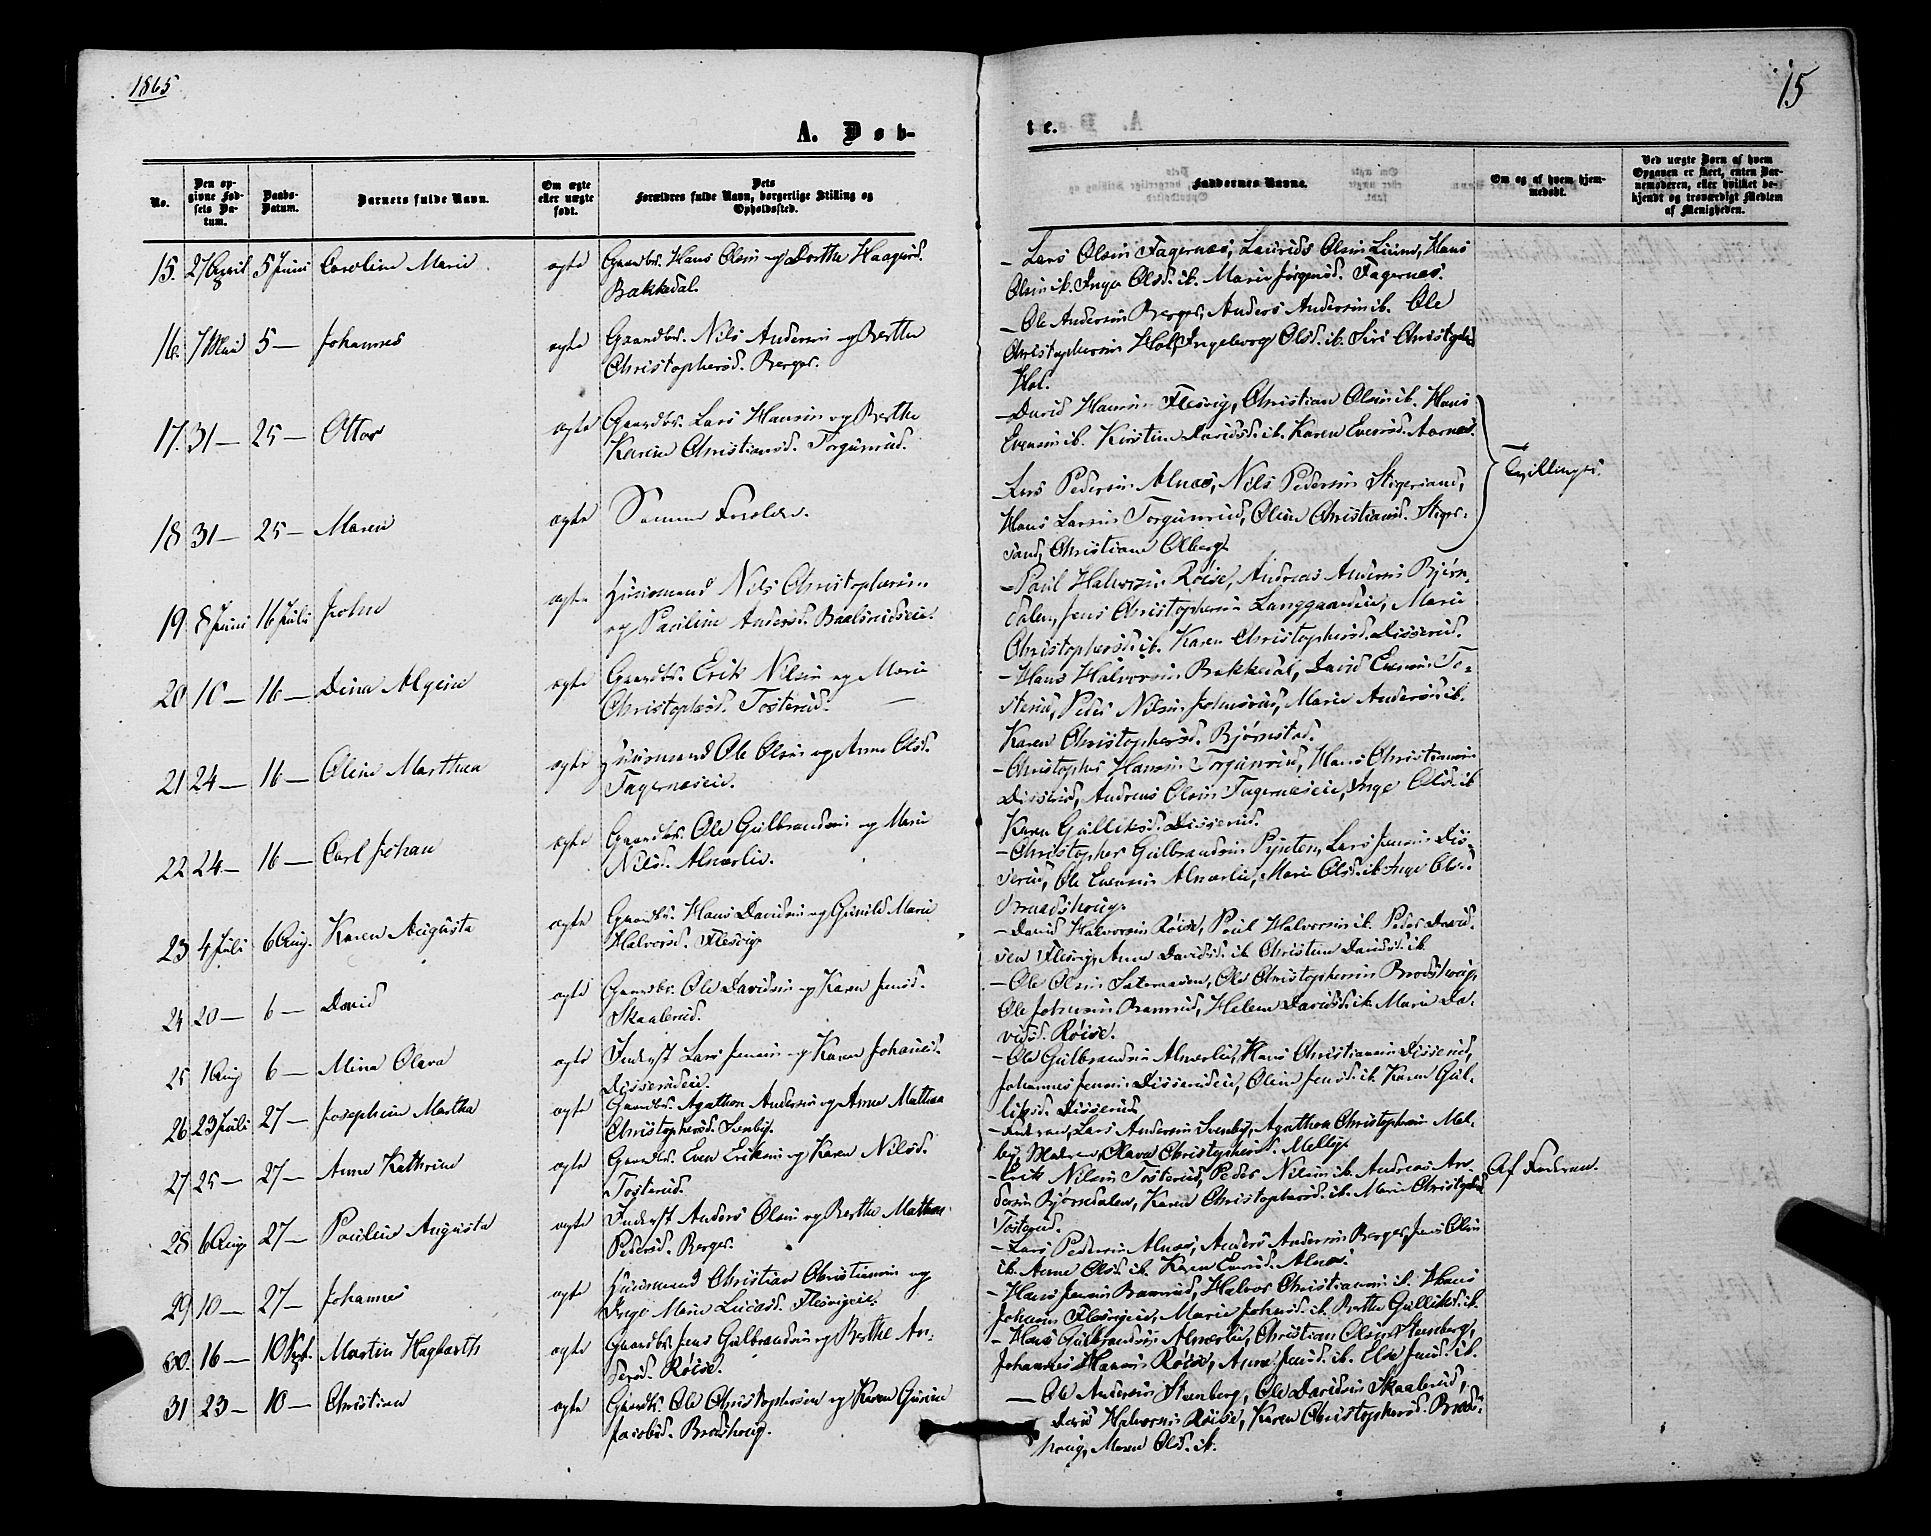 1865
15
A. Døb-
te.
No.
Den op-
givne Fød-
sels Da-
tum.
Daabs-
Datum.
Barnets fulde Navn.
Om ægte
eller uægte
født.
Dets
Forældres fulde Navn, borgerlige Stilling og
Opholdssted.
Faddernes Navne.
Om og af hvem hjem-
medøbt.
Ved uægte Børn af hvem
Opgaven er skeet, enten Bar-
nemoderen, eller hvilket be-
kjendt og troværdigt Medlem
af Menigheden.
15. 27 April 5 Juni Caroline Marie ægte Gaardbr. Hans Olsen og Dorthe Haagensd.
Bakkedal.
- Lars Olsen Fagernæs, Laurids Olsen Hans
Olsen ib. Inger Olsd. ib. Marie Jørgensd. Fagernæs.
16. 7 Mai 5 - Johannes ægte Gaardbr. Nils Andersen og Berthe
Christophersd. Berger.
- Ole Andersen Berger, Anders Andersen ib. Ole
Christophersen Hol, Ingeborg Olsd. ib. Siri Christophersd.
Hol.
17. 31 - 25 - Ottar ægte Gaardbr. Lars Hansen og Berthe
Karine Christiansd. Torgunrud.
- David Hansen Flesvig, Christian Olsen ib. Hans
Evensen ib. Kirstine Davidsd. ib. Karen Evensd. Aarnæs.
Tvillinger.
18 31 - 25 - Maren ægte Samme Forældre.
- Lars Pedersen Alnæs, Nils Pedersen Stigersand,
Hans Larsen Torgunrud, Oline Christiansd. Stiger-
sand, Christiane Olberg.
19. 8 Juni 16 Juli Johan ægte Huusmand Nils Christophersen
og Pauline Andersd. Baalsrudseie.
- Paul Halvorsen Røise, Andreas Andersen Bjørn-
dalen, Jens Christophersen Langgaardseie, Marie
Christophersd. ib. Karen Christophersd. Disserud.
20 10 - 16 - Dina ægte Gaardbr. Erik Nilsen og Marie
Christophersd. Tosterud.
- Hans Halvorsen Bakkedal, David Evensen To-
sterud, Peder Nilsen Johnsrud, Marie Andersd. ib.
Karen Christophersd. Bjørnstad.
21 24 - 16 - Oline Marthea ægte Huusmand Ole Olsen og Anne Olsd.
Fagernæseie.
- Christopher Hansen Torgunrud, Hans Christiansen
Disserud, Andreas Olsen Fagernæseie, Inge Olsd. ib.
Karen Gulliksd. Disserud.
22 24 - 16 - Carl Johan ægte Gaardbr. Ole Gulbrandsen og Marie
Nilsd. Almerlie.
- Christopher Gulbrandsen Pynten, Lars Jensen Dis-
serud, Ole Evensen Almerlie, Marie Olsd. ib. Inge Olsd.
Braadshoug.
23 4 Juli 6 Aug. Karen Augusta ægte Gaardbr. Hans Davidsen og Gunild Marie
Halvorsd. Flesvig.
- David Halvorsen Røise, Paul Halvorsen ib. Peder David-
sen Flesvig, Anne Davidsd. ib. Christine Davidsd. ib.
24 20 - 6 - David ægte Gaardbr. Ole Davidsen og Karen Jensd.
Skaalerud.
- Ole Olsen Ole Christophersen Braadshoug,
Ole Johnsen Bamrud, Helene Davidsd. ib. Marie Da-
vidsd. Røise.
25 1 Aug 6 - Mina Olava ægte Inderst Lars Jensen og Karen Johannesd.
Disserudeie.
- Ole Gulbrandsen Almerlie, Hans Christiansen Disserud,
Johannes Jensen Disserudeie, Oline Jensd. ib. Karen Gul-
liksd. Disserud.
26 23 Juli 27 - Josephine Martha ægte Gaardbr. Agathon Andersen og Anne Mathea
Christophersd. Svenby.
- Faderen, Lars Andersen Svenby, Agathon Christophersen Mel-
by, Maren, Olava Christophersd. Melby.
27 25 - 27 - Anne Kathrine ægte Gaardbr. Even Eriksen og Karen Nilsd.
Tosterud.
- Erik Nilsen Tosterud, Peder Nilsen ib. Andreas An-
dersen Bjørndalen, Karen Christophersd. ib. Marie Christophersd.
Tosterud.
Af Faderen.
28 6 Aug 27 - Pauline Augusta ægte Inderst Anders Olsen og Berthe Mathea
Pedersd. Berger.
- Lars Pedersen Alnæs, Anders Andersen Berger, Jens Olsen
ib. Anne Olsd. ib. Karen Evensd. Alnæs.
29 10 - 27 - Johannes ægte Huusmand Christian Christiansen og
Inge Marie Lucasd. Flesvigeie.
- Hans Jensen Bamrud, Halvor Christiansen ib. Hans
Johnsen Flesvigeie, Marie Johnsd. ib. Berthe Gulliksd. ib.
30. 16 - 10 Sept. Martin Hagbarth ægte Gaardbr. Jens Gulbrandsen og Berthe An-
dersd. Røise.
- Hans Gulbrandsen Almerlie, Christian Olsen Steenberg,
Johannes Hansen Røise, Anne Jensd. ib. Else Jensd. ib.
31 23 - 10 - Christian ægte Gaardbr. Ole Christophersen og Karen Gurine
Jacobsd. Braadshoug.
- Ole Andersen Steenberg, Ole Davidsen Skaalerud,
David Halvorsen Røise, Karen Christophersd. Braads-
houg, Maren Olsd. ib.